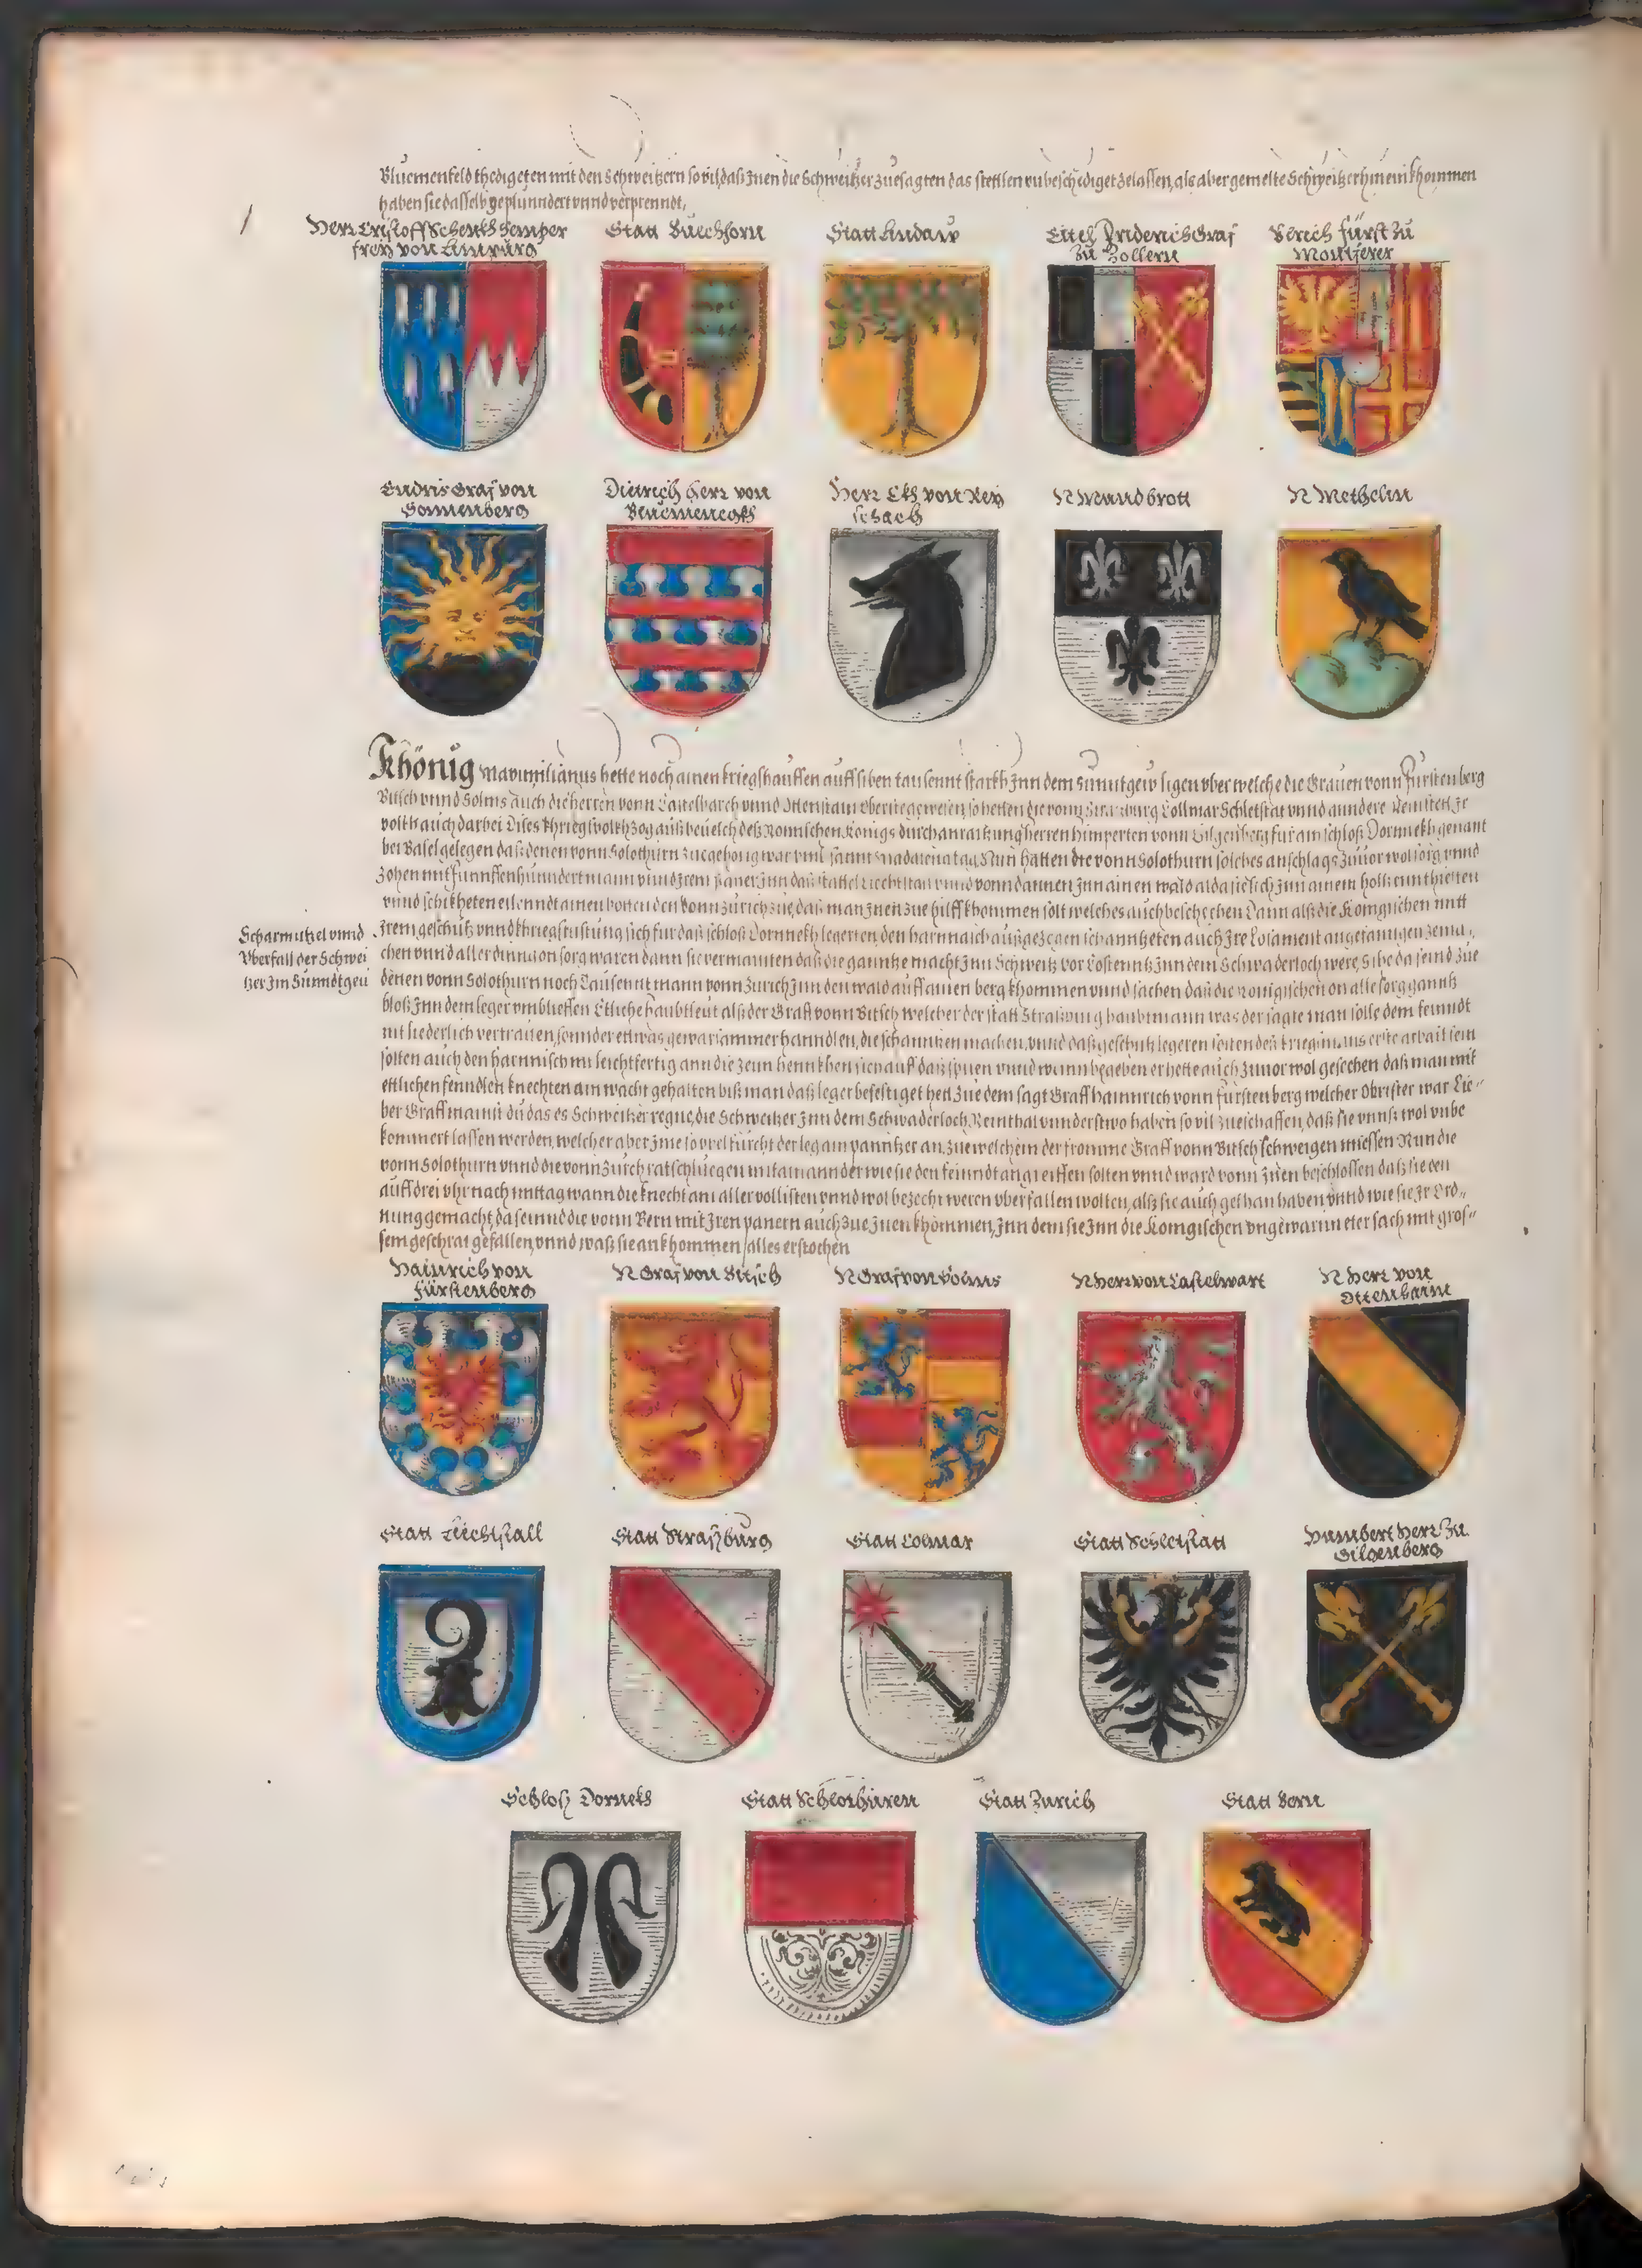 Bluemenfeld thedigeten mit den Schweitzern so vil, daß Inen die Schweitzer zuesagten das stettlen unbeschediget zelassen, als aber gemelte Schweitzer hinein khommen
haben sie dasselb geplünndert unnd verprenndt,
Herr Cristoff Schenkh Semper
freÿ von Limpurg
Statt Buechhorn
Statt Lindaw
Eitel Friderich Graf
zu Zollern
Fürst zu
Montferer
Endris Graf von
Sonnenberg
Dietrich Herr von
Herr Ekh von Reÿ
schach
N Mundbrott
N Methelin
Khönig Maximilianus hette noch ainen kriegshauffen auff siben tausennt starkh Inn dem Sunntgew ligen uber welche die Grauen vonn Fürstenberg
Bitsch unnd Solms auch die herren vonn Castelbarch unnd
volkh auch darbei Dises khriegsvolkh zog auß beuelch deß Romischen Konigs durch anraitzung herren Himperten vonn Gilgenberg für ain schloß Dornnekh genant
bei Basel gelegen daß denen vonn Solothurn zuegehorig war Nun hatten die vonn Solothurn solches anschlags zuuor wol sorg unnd
zohen mit funnffenhunndert mann unnd Irem paner Inn daß stattel Liechtstal unnd vonn dannen Inn ainen wald alda sie sich Inn ainem holtz
unnd schikheten eilenndt ainen botten den vonn Zürich zue, daß man Inen zue hilff khommen solt welches auch beschechen Dann alß die Konigischen mitt
Scharmützel unnd
Uberfall der Schwei
tzer Im Sunndtgeu
Irem geschütz unnd khriegsrustung sich für daß schloß Dornnekh legerten, den harnnaisch außgezogen
chen unnd aller dinng on sorg waren dann sie vermainten daß die ganntze macht Inn Schweitz vor Costenntz Inn dem Schwaderloch were, Sihe da seind zue
denen vonn Solothurn noch Tausennt mann vonn Zürich Inn den wald auff ainen berg khommen unnd sachen daß die Konigischen on alle sorg ganntz
bloß Inn dem leger umblieffen Etliche haubtleut alß der Graff vonn Bitsch welcher der statt Straßburg haubtmann was der sagte man solle dem feinndt
nit liederlich vertrauen, sonnder ettwas gewarsammer hanndlen, die schanntzen machen, unnd daß geschütz legeren
solten auch den harnnisch nit leichtfertig ann die zeun hennkhen
ettlichen fenndlen knechten ain wacht gehalten biß man daß leger befestiget hett Zue dem sagt Graff Hainnrich vonn Fürstenberg welcher Obrister war Lie-
ber Graff mainst du das es Schweitzer regne, die Schweitzer Inn dem Schwaderloch, Reinthal unnd anderstwo haben so vil zueschaffen, daß sie unns wol unbe
kommert lassen werden, welcher aber Ime so vbel fürcht der leg ain panntzer an, zue welchem der fromme Graff vonn Bitsch schweigen miessen Nun die
vonn Solothurn unnd die vonn Zürch ratschluegen mitainannder wie sie den feinndt anngreiffen solten unnd ward vonn Inen beschlossen daß sie den
auff drei uhr nach mittag wann die knecht am aller vollisten unnd wol bezecht weren uberfallen wolten, alß sie auch gethan haben, unnd wie sie Ir Ord-
nung gemacht, da seinnd die vonn Bern mit Iren panern auch zue Inen khommen, Inn dem sie Inn die Konigischen ungewarnneter sach mit gros-
sem geschrai gefallen, unnd waß sie ankhommen, alles erstochen
Hainrich von
Fürstenberg
N Graf von Bitsch
N Graf von Solms
N Herr von Castelwart
N Herr von
Statt Liechtstall
Statt Straßburg
Statt Colmar
Statt Schletstatt
Humbert Herr zu
Gilgenberg
Schloß Dornekh
Statt Schlothuren
Statt Zürich
Statt Bern